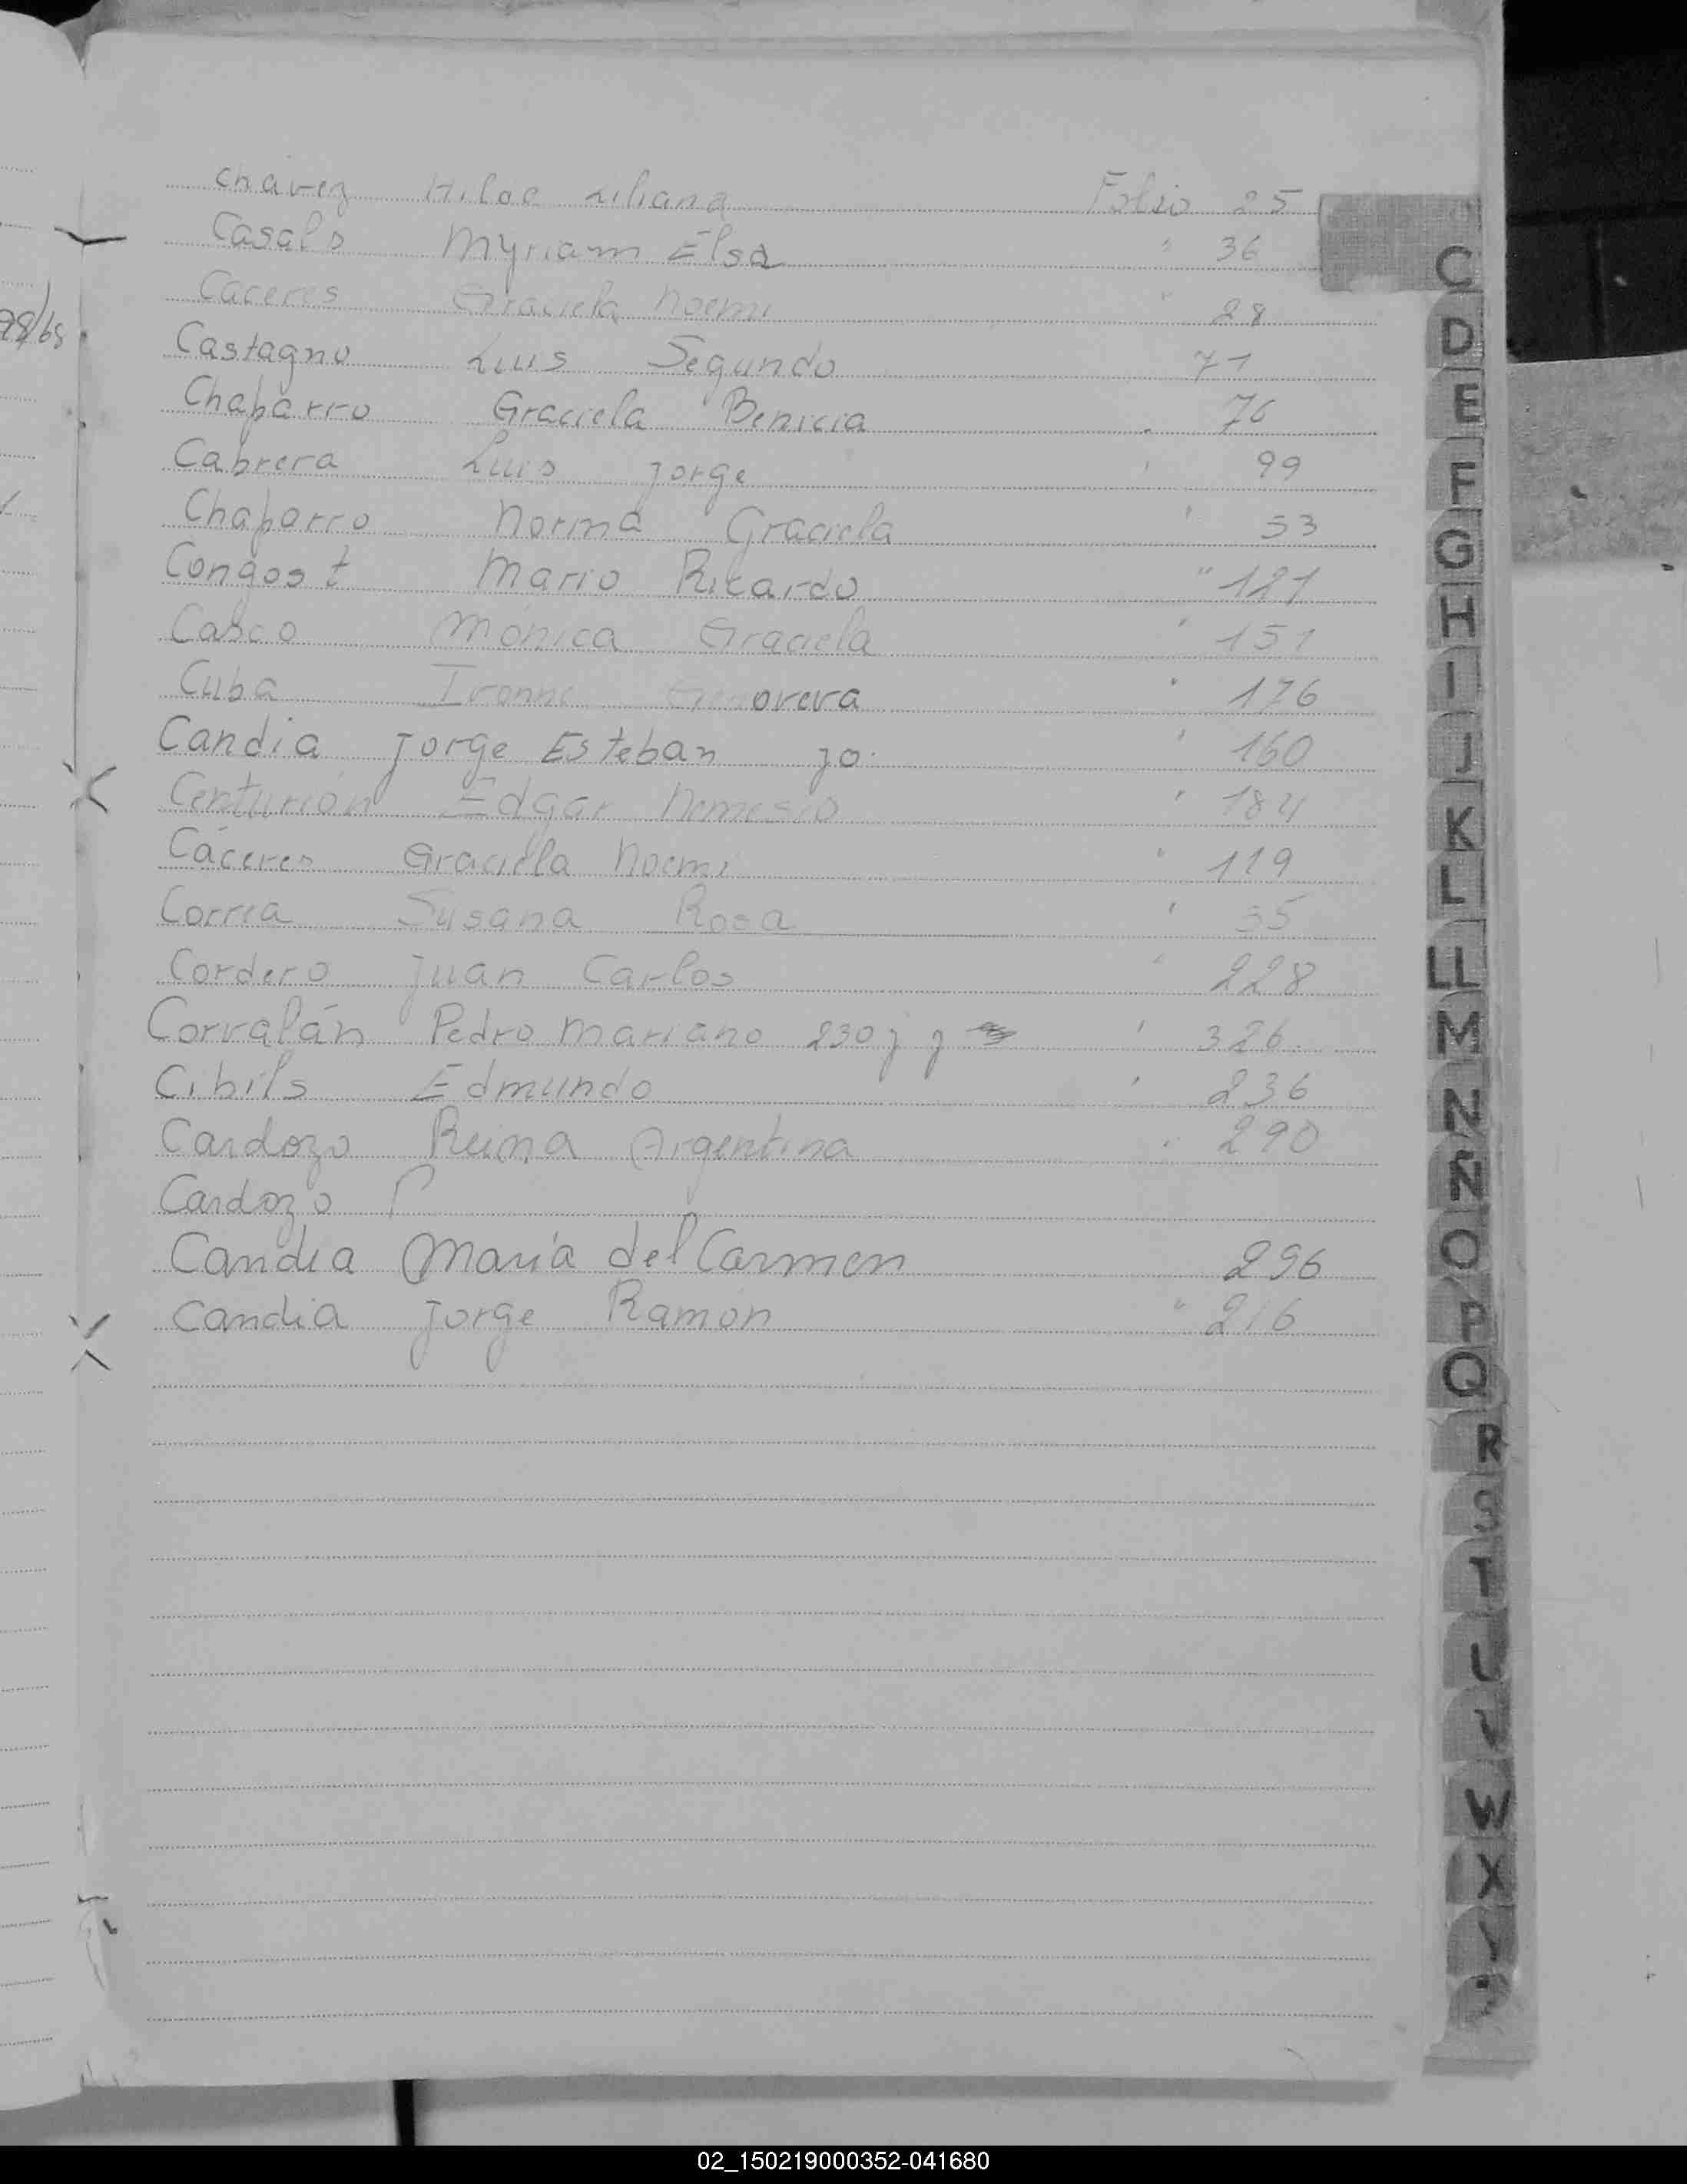 Chavez Hilda Liliana Folio 25
Casals Myriam Elsa " 36
Caceres Graciela Noemi " 28
Castagno Luis Segundo 71
Chaparro Graciela Benicia " 76
Cabrera Luis Jorge " 99
Chaparro Norma Graciela " 53
Congost Mario Ricardo " 121
Casco Mónica Graciela " 151
Cuba Ivonne Genoveva " 176
Candia Jorge Esteban Jo. " 160
Centurión Edgar Nemesio " 184
Cáceres Graciela Noemi " 119
Correa Susana Rosa " 35
Cordero Juan Carlos " 228
Corvalán Pedro Mariano 230 " 326
Cibils Edmundo " 236
Cardozo Reina Argentina " 290
Cardozo
Candia María del Carmen 296
Candia Jorge Ramón " 216
C
D
E
F
G
H
I
J
K
L
LL
M
N
Ñ
O
P
Q
R
S
T
U
V
W
X
Y
02_150219000352-041680